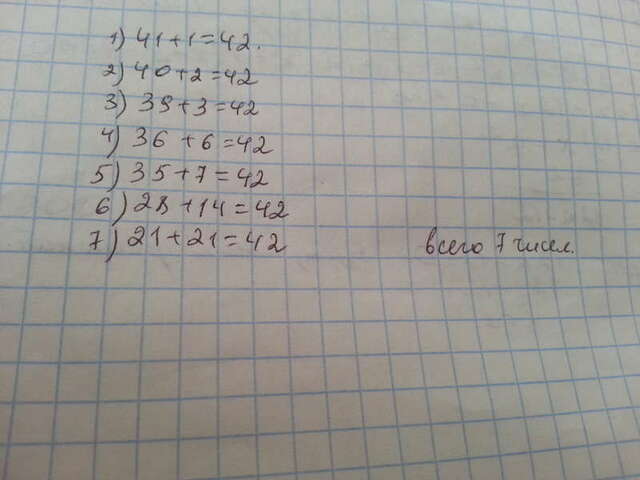 1) 41+1=42.
2) 40+2=42
3) 39+3=42
4) 36+6=42
5) 35+7=42
6) 28+14=42
7) 21+21=42 всего 7 чисел.